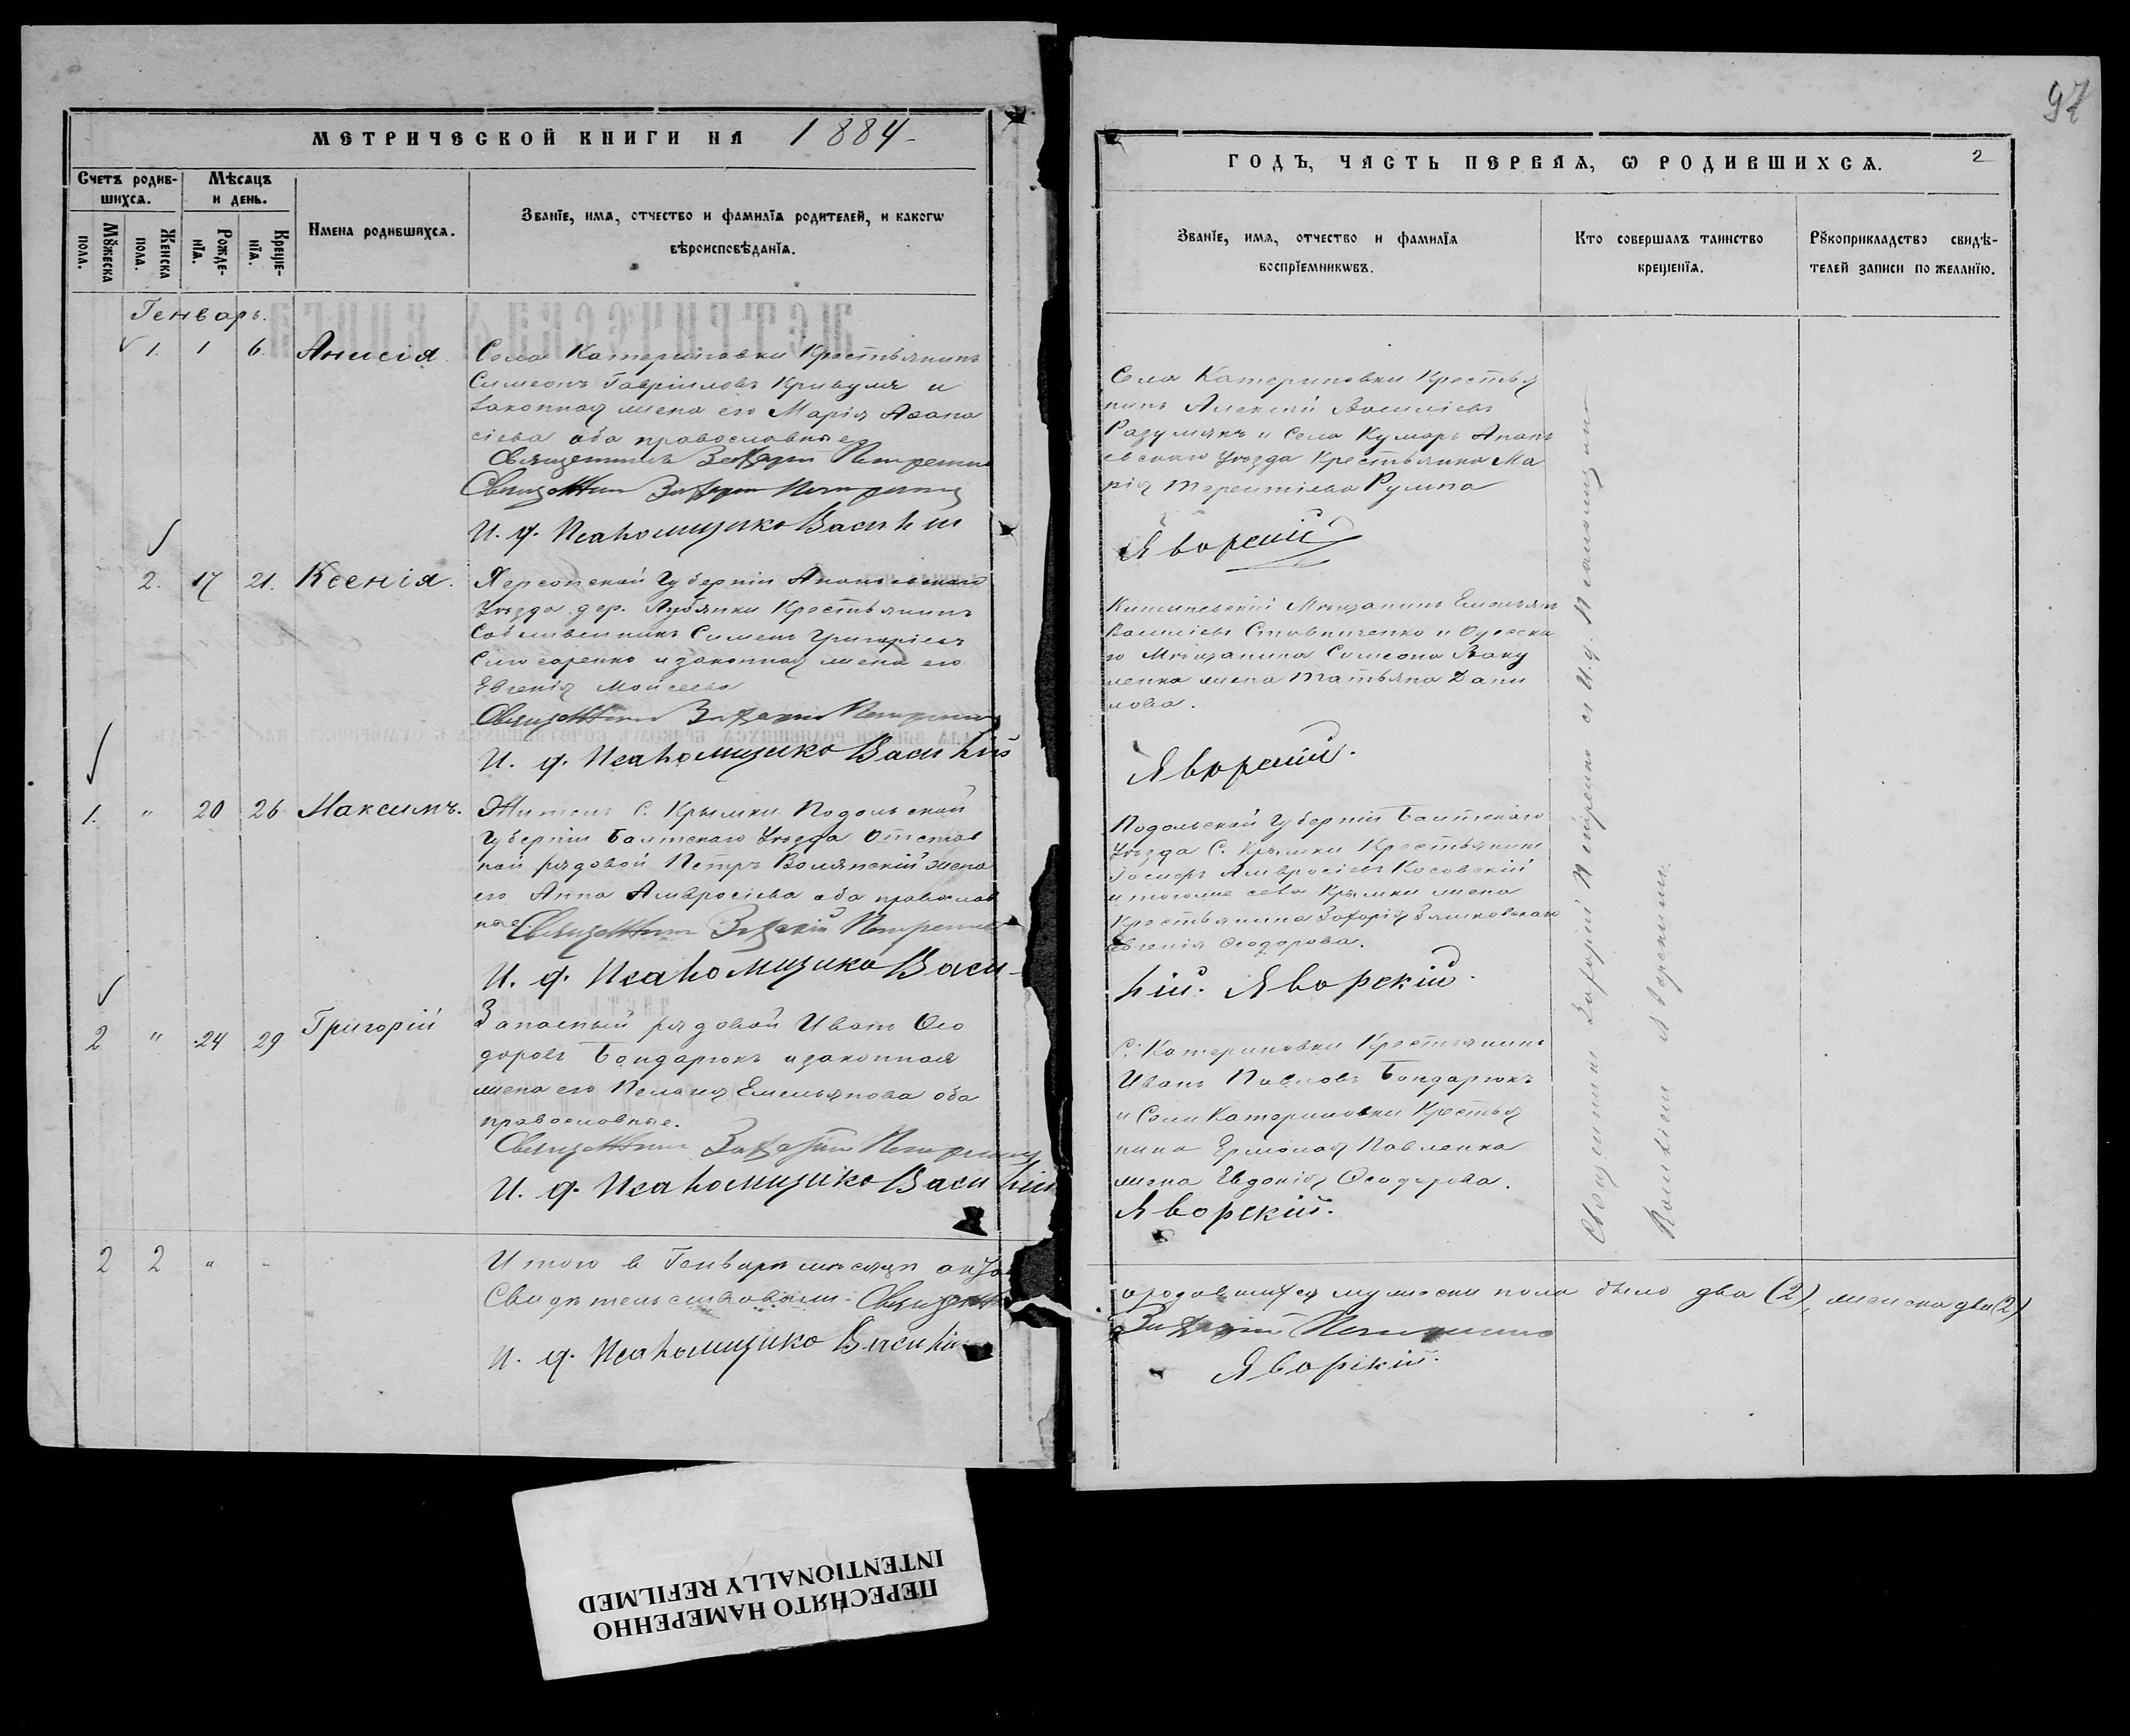 МЕТРИЧЕСКОЙ КНИГИ НА 1884
Счетъ родив-
шихся.
Мѣсяцъ
и день.
Мужеска
пола.
Женска
пола.
Рожде-
нїя.
Креще-
нїя.
Имена родившихся.
Званїе, имя, отчество и фамилїя родителей, и какогѡ
вѣроисповѣданїя.
Генварь.
1. 1 6. Анисія
Села Катериновки Крестьянинъ
Симеонъ Гавріиловъ Кривуля и
законная жена его Марія Аѳана
сіева оба православные
Священникъ Захарій Петренко
Священникъ Захарій Петренко
И. д. Псаломщика Василій
2. 17 21. Ксенія.
Херсонской Губерніи Ананьевскаго
Уѣзда дер. Лубянки Крестьянинъ
Собственникъ Симеонъ Григоріевъ
Слюсаренко и законная жена его
Евгенія Моисеева
Священникъ Захарій Петренко
И. д. Псаломщика Василій
1. " 20 26 Максимъ.
Житель С. Крымки Подольской
Губерніи Балтскаго Уѣзда Отстав
ной рядовой Петръ Волянскій жена
его Анна Амвросіева оба православ
ные Священникъ Захарій Петренко
И. д. Псаломщика Васи-
2 " 24 29 Григорій
Запасный рядовой Иванъ Ѳео
доровъ Бондарюкъ и законная
жена его Пелагія Емельянова оба
православные.
Священникъ Захарій Петренко
И. д. Псаломщика Василій
2 2 " "
Итого в Генварѣ мѣсяцѣ
Свидѣтельствовали: Священникъ
И. д. Псаломщика Василій
97
ГОДЪ, ЧАСТЬ ПЕРВАЯ, Ѡ РОДИВШИХСЯ. 2
Званїе, имя, отчество и фамилїя
воспрїемникѡвъ.
Кто совершалъ таинство
крещенїя.
Рукоприкладство свидѣ-
телей записи по желанїю.
Села Катериновки Крестья
нинъ Алексій Василіевъ
Разумякъ и Села Кумаръ Анань
евскаго Уѣзда Крестьянка Ма
рія Терентіева
Яворскій
Кишиневскій Мѣщанинъ Емельянъ
Василіевъ Ставниченко и Одесска
го Мѣщанина Симеона Ваку
ленка жена Татьяна Дани
лова.
Яворскій.
Подольской Губерніи Балтскаго
Уѣзда С. Крымки Крестьянинъ
Амвросіевъ Косовскій
и тогоже села Крымки жена
Крестьянина Захарія
Евгенія Ѳеодорова.
лій. Яворскій.
С. Катериновки Крестьянинъ
Иванъ Павловъ Бондарюкъ
и Села Катериновки Крестья
нина Ермолая Павленка
жена Евдокія Ѳеодорова.
Яворскій.
Священникъ Захарій Петренко съ И. д. Псаломщика
Василіемъ Яворскимъ.
родившихся мужеска пола было два (2), женска два (2)
Захарій Петренко
Яворскій.
ПЕРЕСНЯТО НАМЕРЕННО
INTENTIONALLY REFILMED